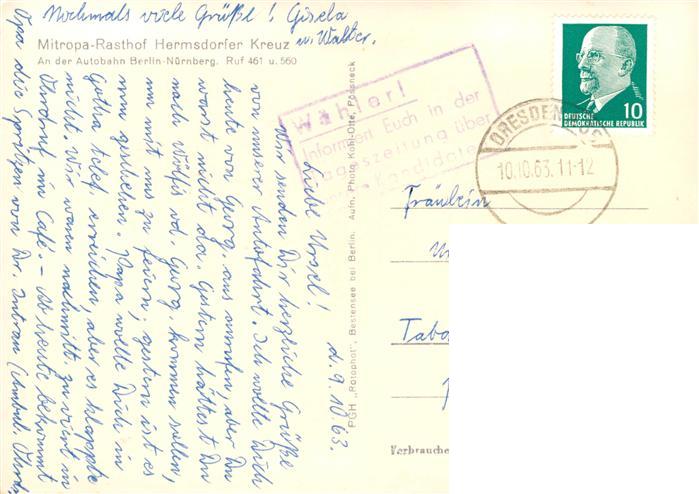 Nochmals viele Grüße! Gisela
u. Walter.
Mitropa-Rasthof Hermsdorfer Kreuz
An der Autobahn Berlin-Nürnberg. Ruf 461 u. 560
d. 9. 10. 63.
Liebe Ursel!
Wir senden Dir herzliche Grüße
von unserer Autofahrt. Ich wollte Dich
heute von Georg. aus anrufen, aber Du
warst nicht da. Gestern hättest Du
nach Wölfis od. Georg. kommen sollen,
um mit uns zu feiern; gestern ist es
nun geblieben. Papa wollte Dich in
Gotha telef. erreichen, aber es klappte
nicht. Wir waren nachmitt. zu viert in
Ohrdruf im Café. - Ab heute bekommt
Opa die Spritzen von Dr.
PGH "Rotophot", Bestensee bei Berlin. Aufn. Photo Kohl-Otte, Pössneck
Wähler!
Informiert Euch in der
Tageszeitung über
Kandidaten
DEUTSCHE
DEMOKRATISCHE REPUBLIK
10
DRESDEN
10.10.63.11-12
Fräulein
Verbrauche